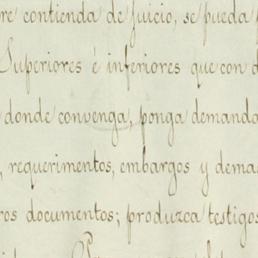 re contienda de Juicio, se pueda p
Superiores é inferiores que con d
donde convenga, ponga demanda
, requerimentos, embargos y dema
ros documentos; produzca testigos